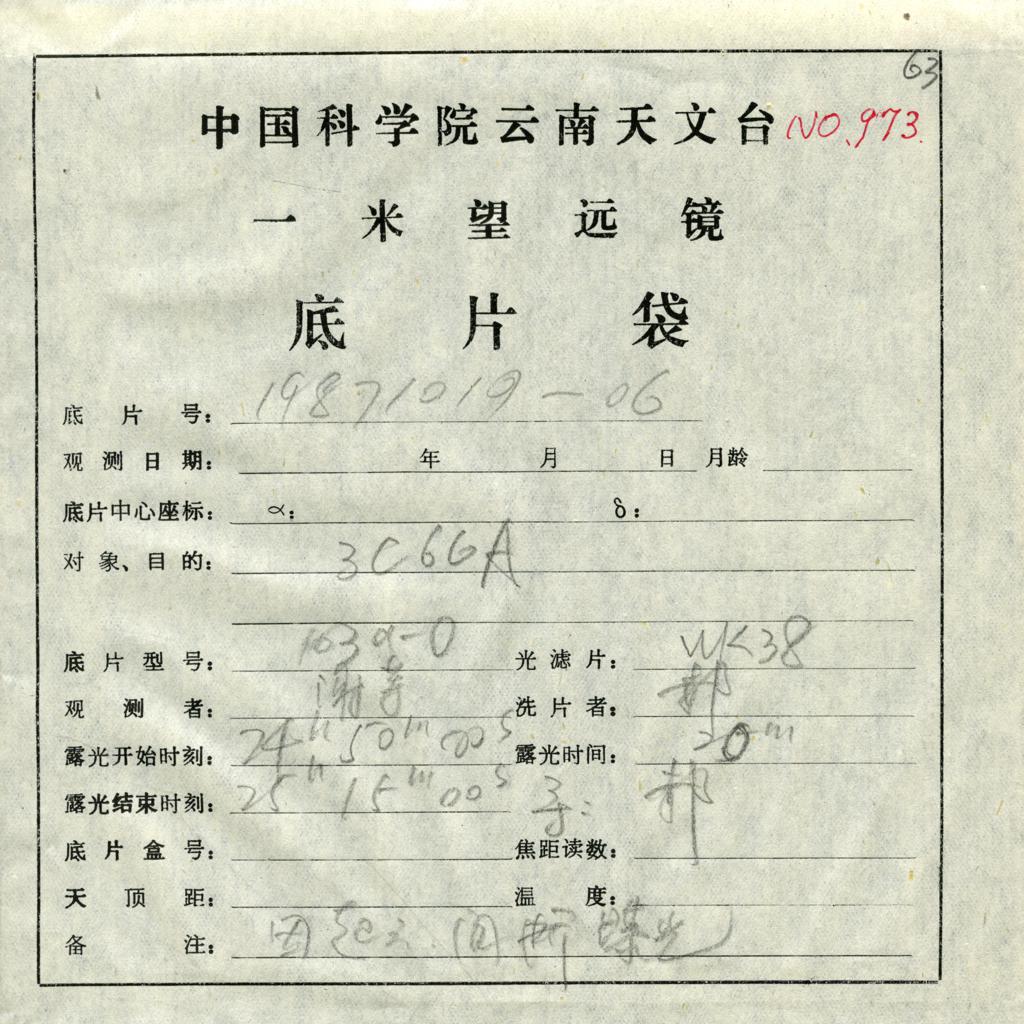 63
中国科学院云南天文台 NO.973.
一米望远镜
底片袋
底片号: 19871019-06
观测日期: 年 月 日 月龄
底片中心座标: α: δ:
对象、目的: 3C66A
底片型号: 103a-O 光滤片: WK38
观测者: 谢 洗片者: 郝
露光开始时刻: 24h 50m 00s 露光时间: 20m
露光结束时刻: 25h 15m 00s 导: 郝
底片盒号: 焦距读数:
天顶距: 温度:
备注: 因起云间断曝光